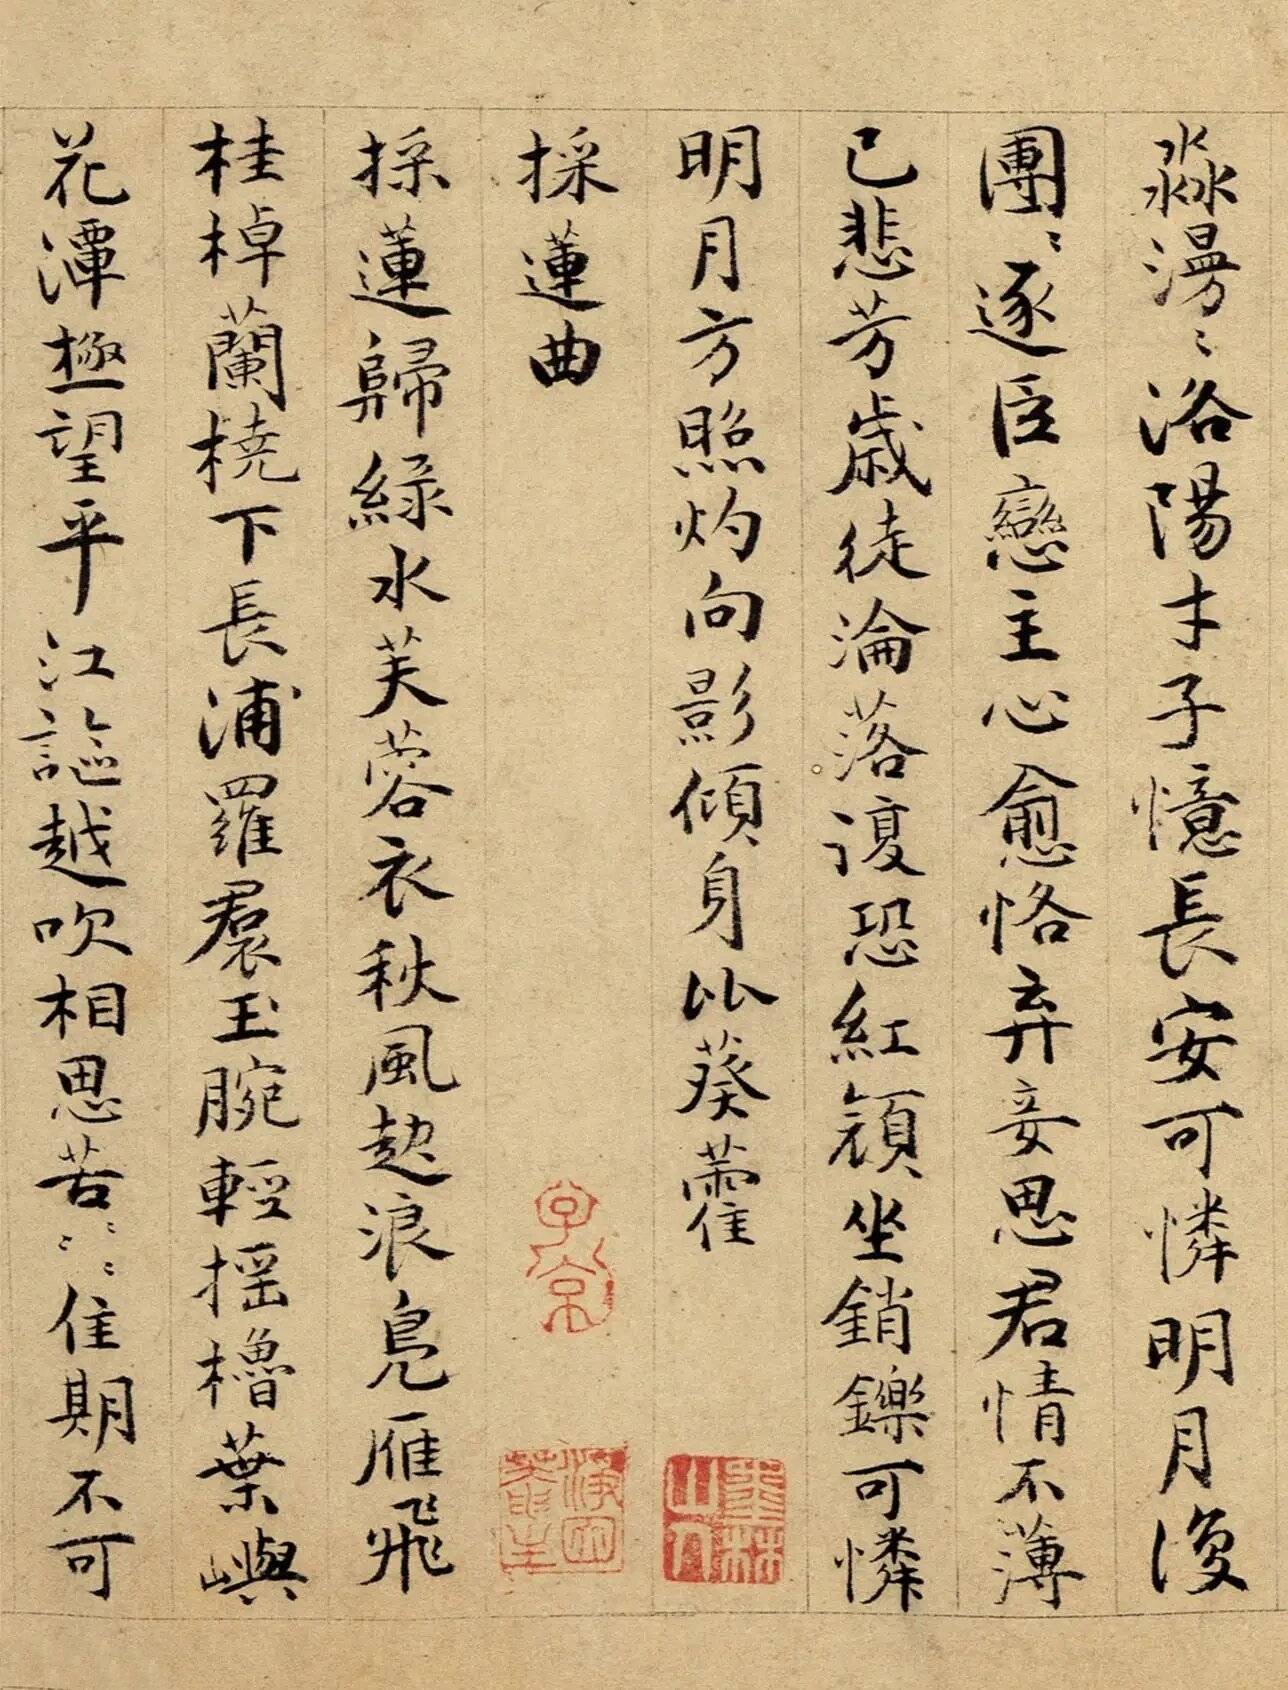 淼漫〻洛陽才子憶長安可憐明月復
團〻逐臣戀主心愈恪弃妾思君情不薄
已悲芳歲徒淪落復恐紅顏坐銷鑠可憐
明月方照灼向影傾身比葵藿
墨林山人
採蓮曲
子京
淨因菴主
採蓮歸綠水芙蓉衣秋風起浪鳧雁飛
桂棹蘭橈下長浦羅裠玉腕輕搖櫓葉嶼
花潭極望平江謳越吹相思苦〻〻佳期不可